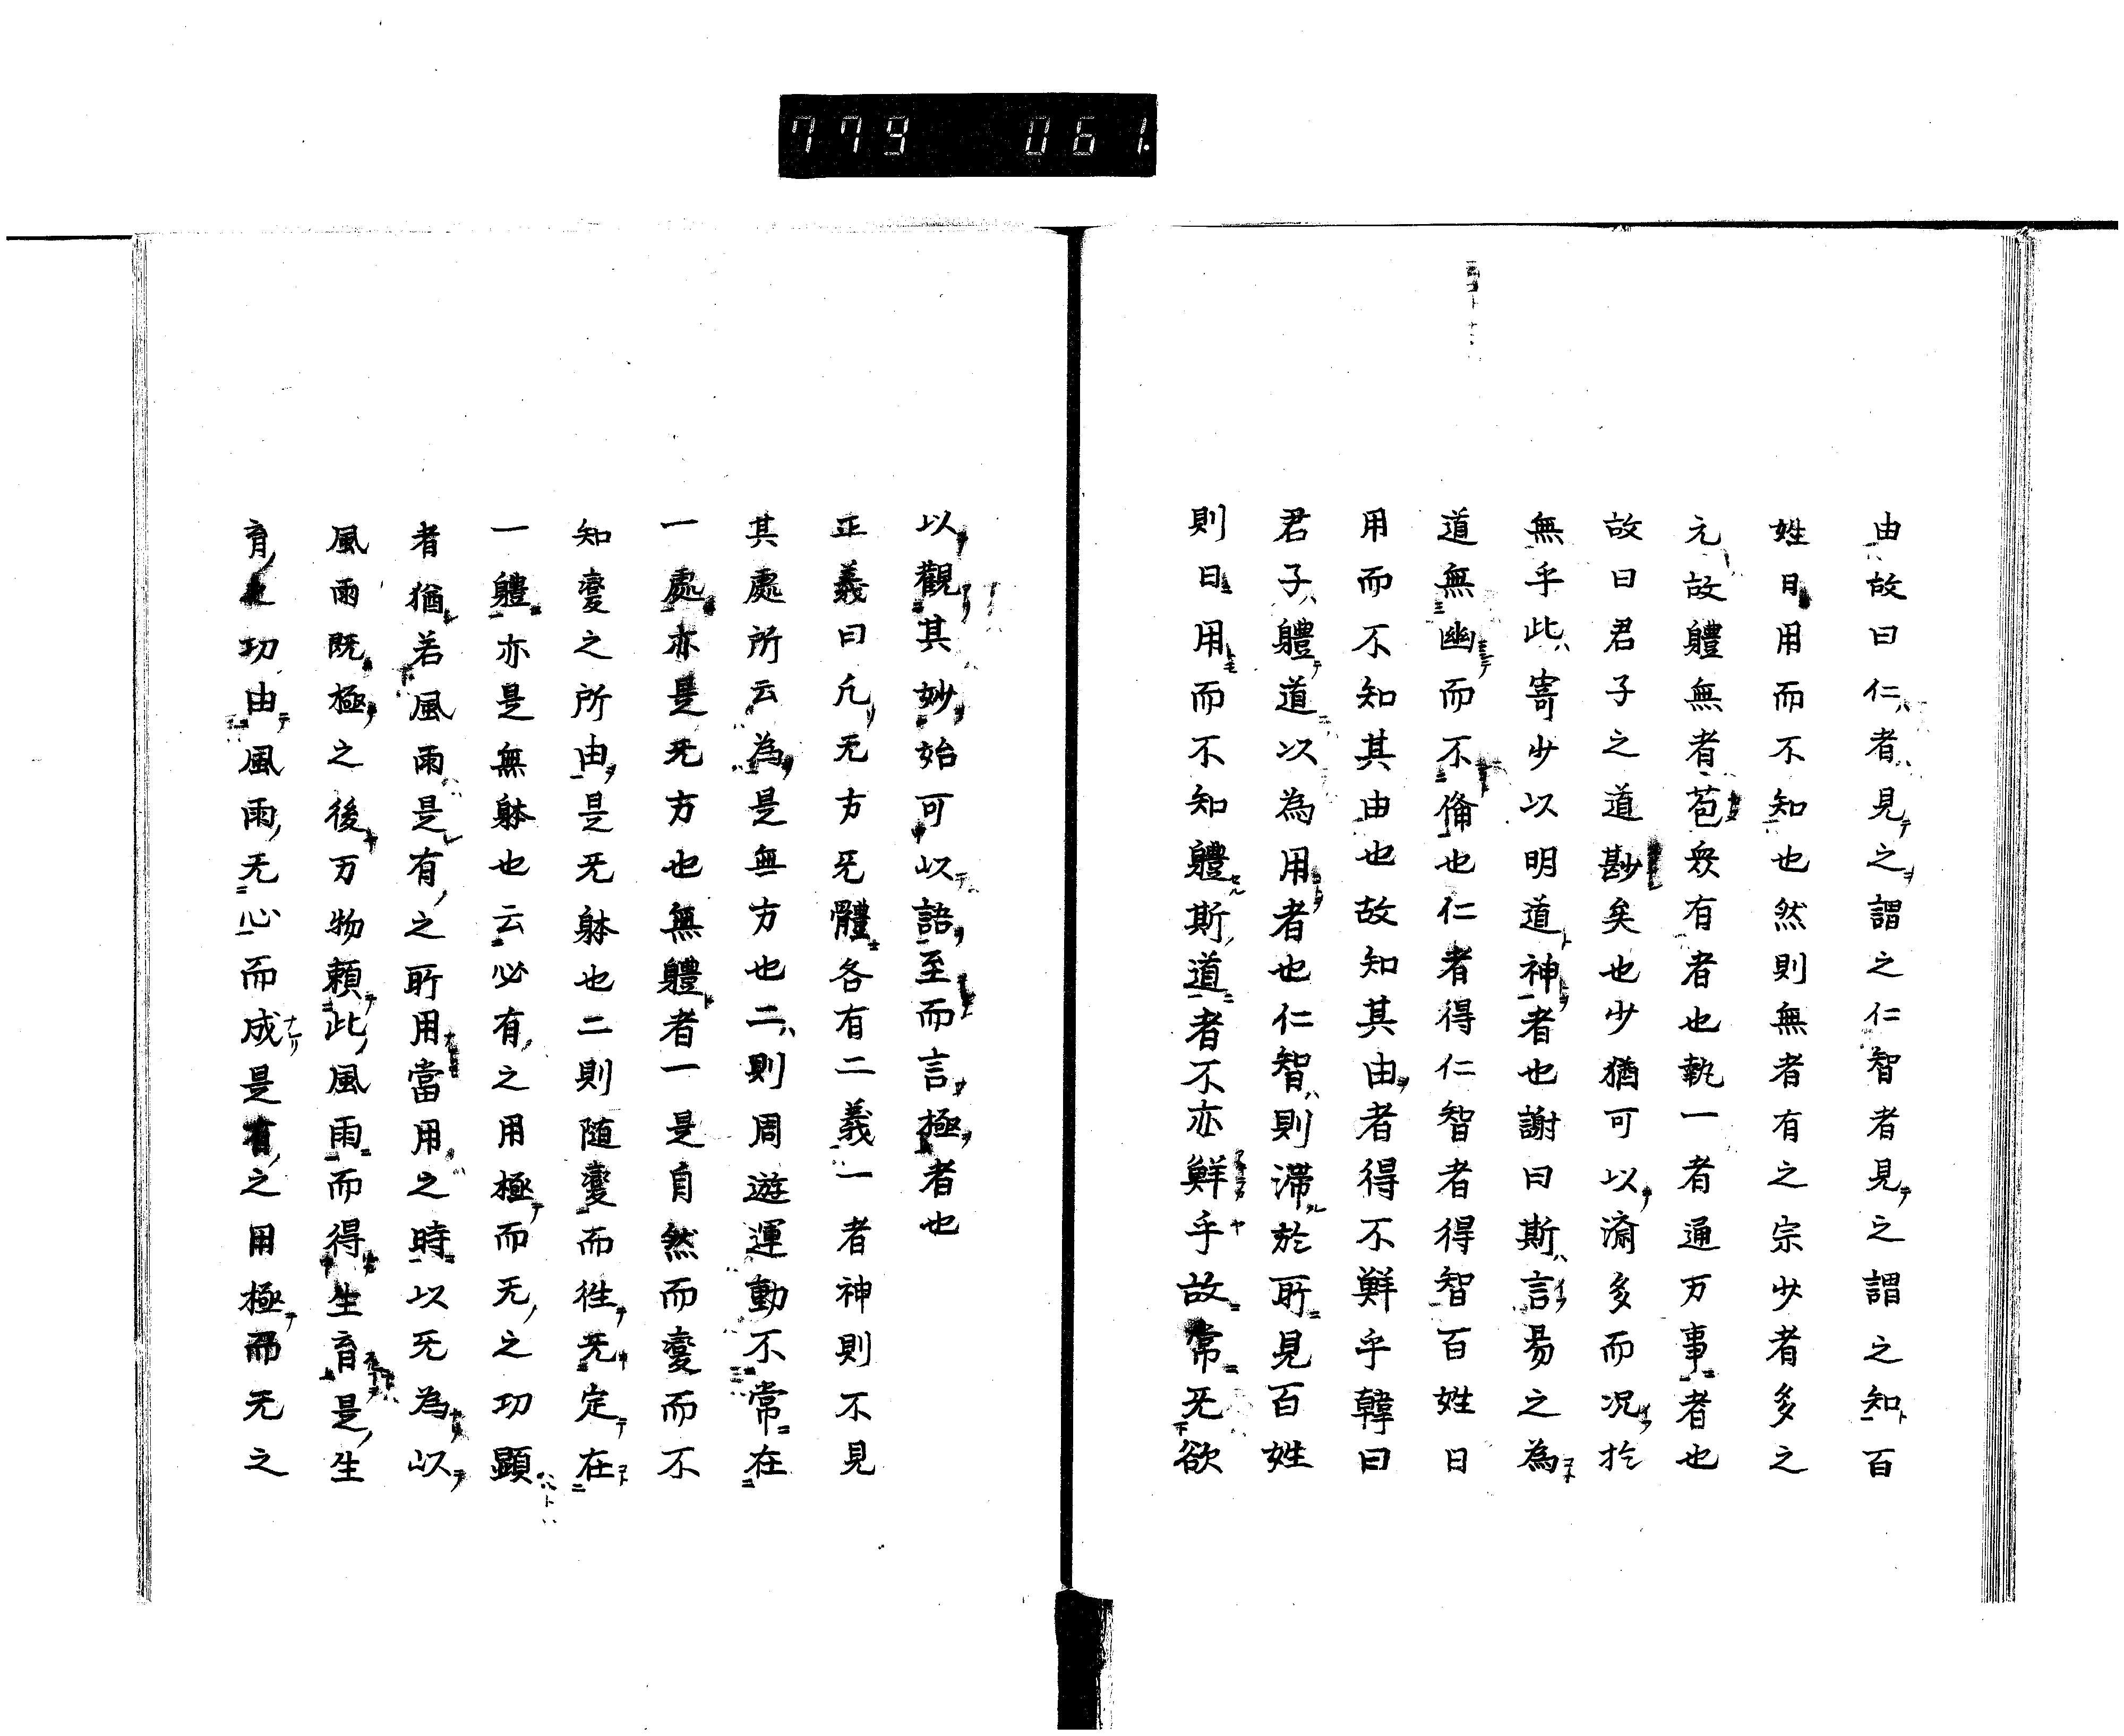 779 061.
由故曰仁者見之謂之仁智者見之謂之知百
姓日用而不知也然則無者有之宗少者多之
元故軆無者苞衆有者也執一者通万事者也
故曰君子之道尠矣也少猶可以済多而况於
無乎此寄少以明道神者也謝曰斯言易之為
道無幽而不備也仁者得仁智者得智百姓日
用而不知其由也故知其由者得不鮮乎韓曰
君子軆道以為用者也仁智則滞於所見百姓
則日用而不知軆斯道者不亦鮮乎故常无欲
以觀其妙始可以語至而言極者也
正義曰凢无方无體各有二義一者神則不見
其處所云為是無方也二則周遊運動不常在
一處亦是无方也無軆者一是自然而變而不
知變之所由是无躰也二則随變而徃无定在
一軆亦是無躰也云必有之用極而无之功顕
者猶若風雨是有之所用當用之時以无為以
風雨既極之後万物頼此風雨而得生育是生
育之功由風雨无心而成是有之用極而无之